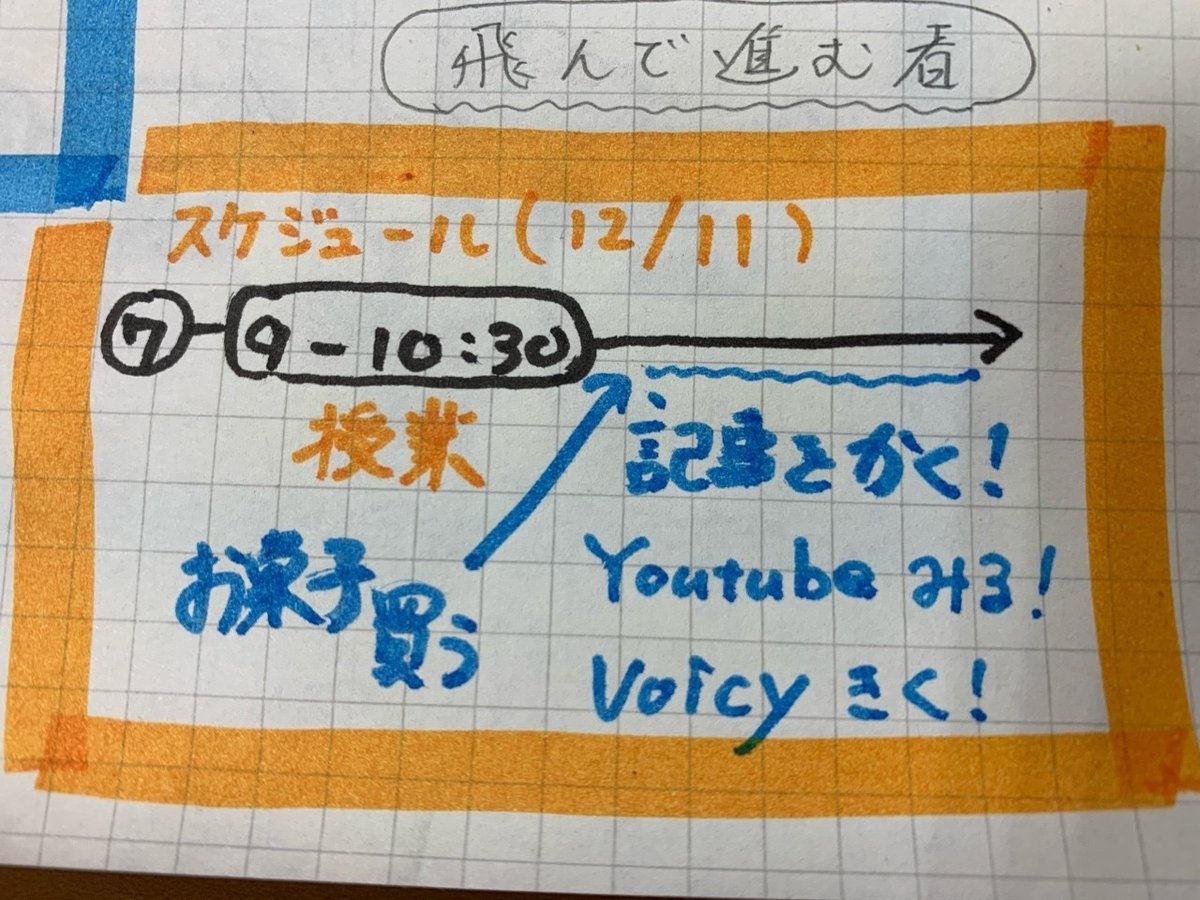 飛んで進む看
スケジュール(12/11)
⑦ 9-10:30
授業
記事をかく!
お菓子買う
Youtube みる!
Voicy きく!